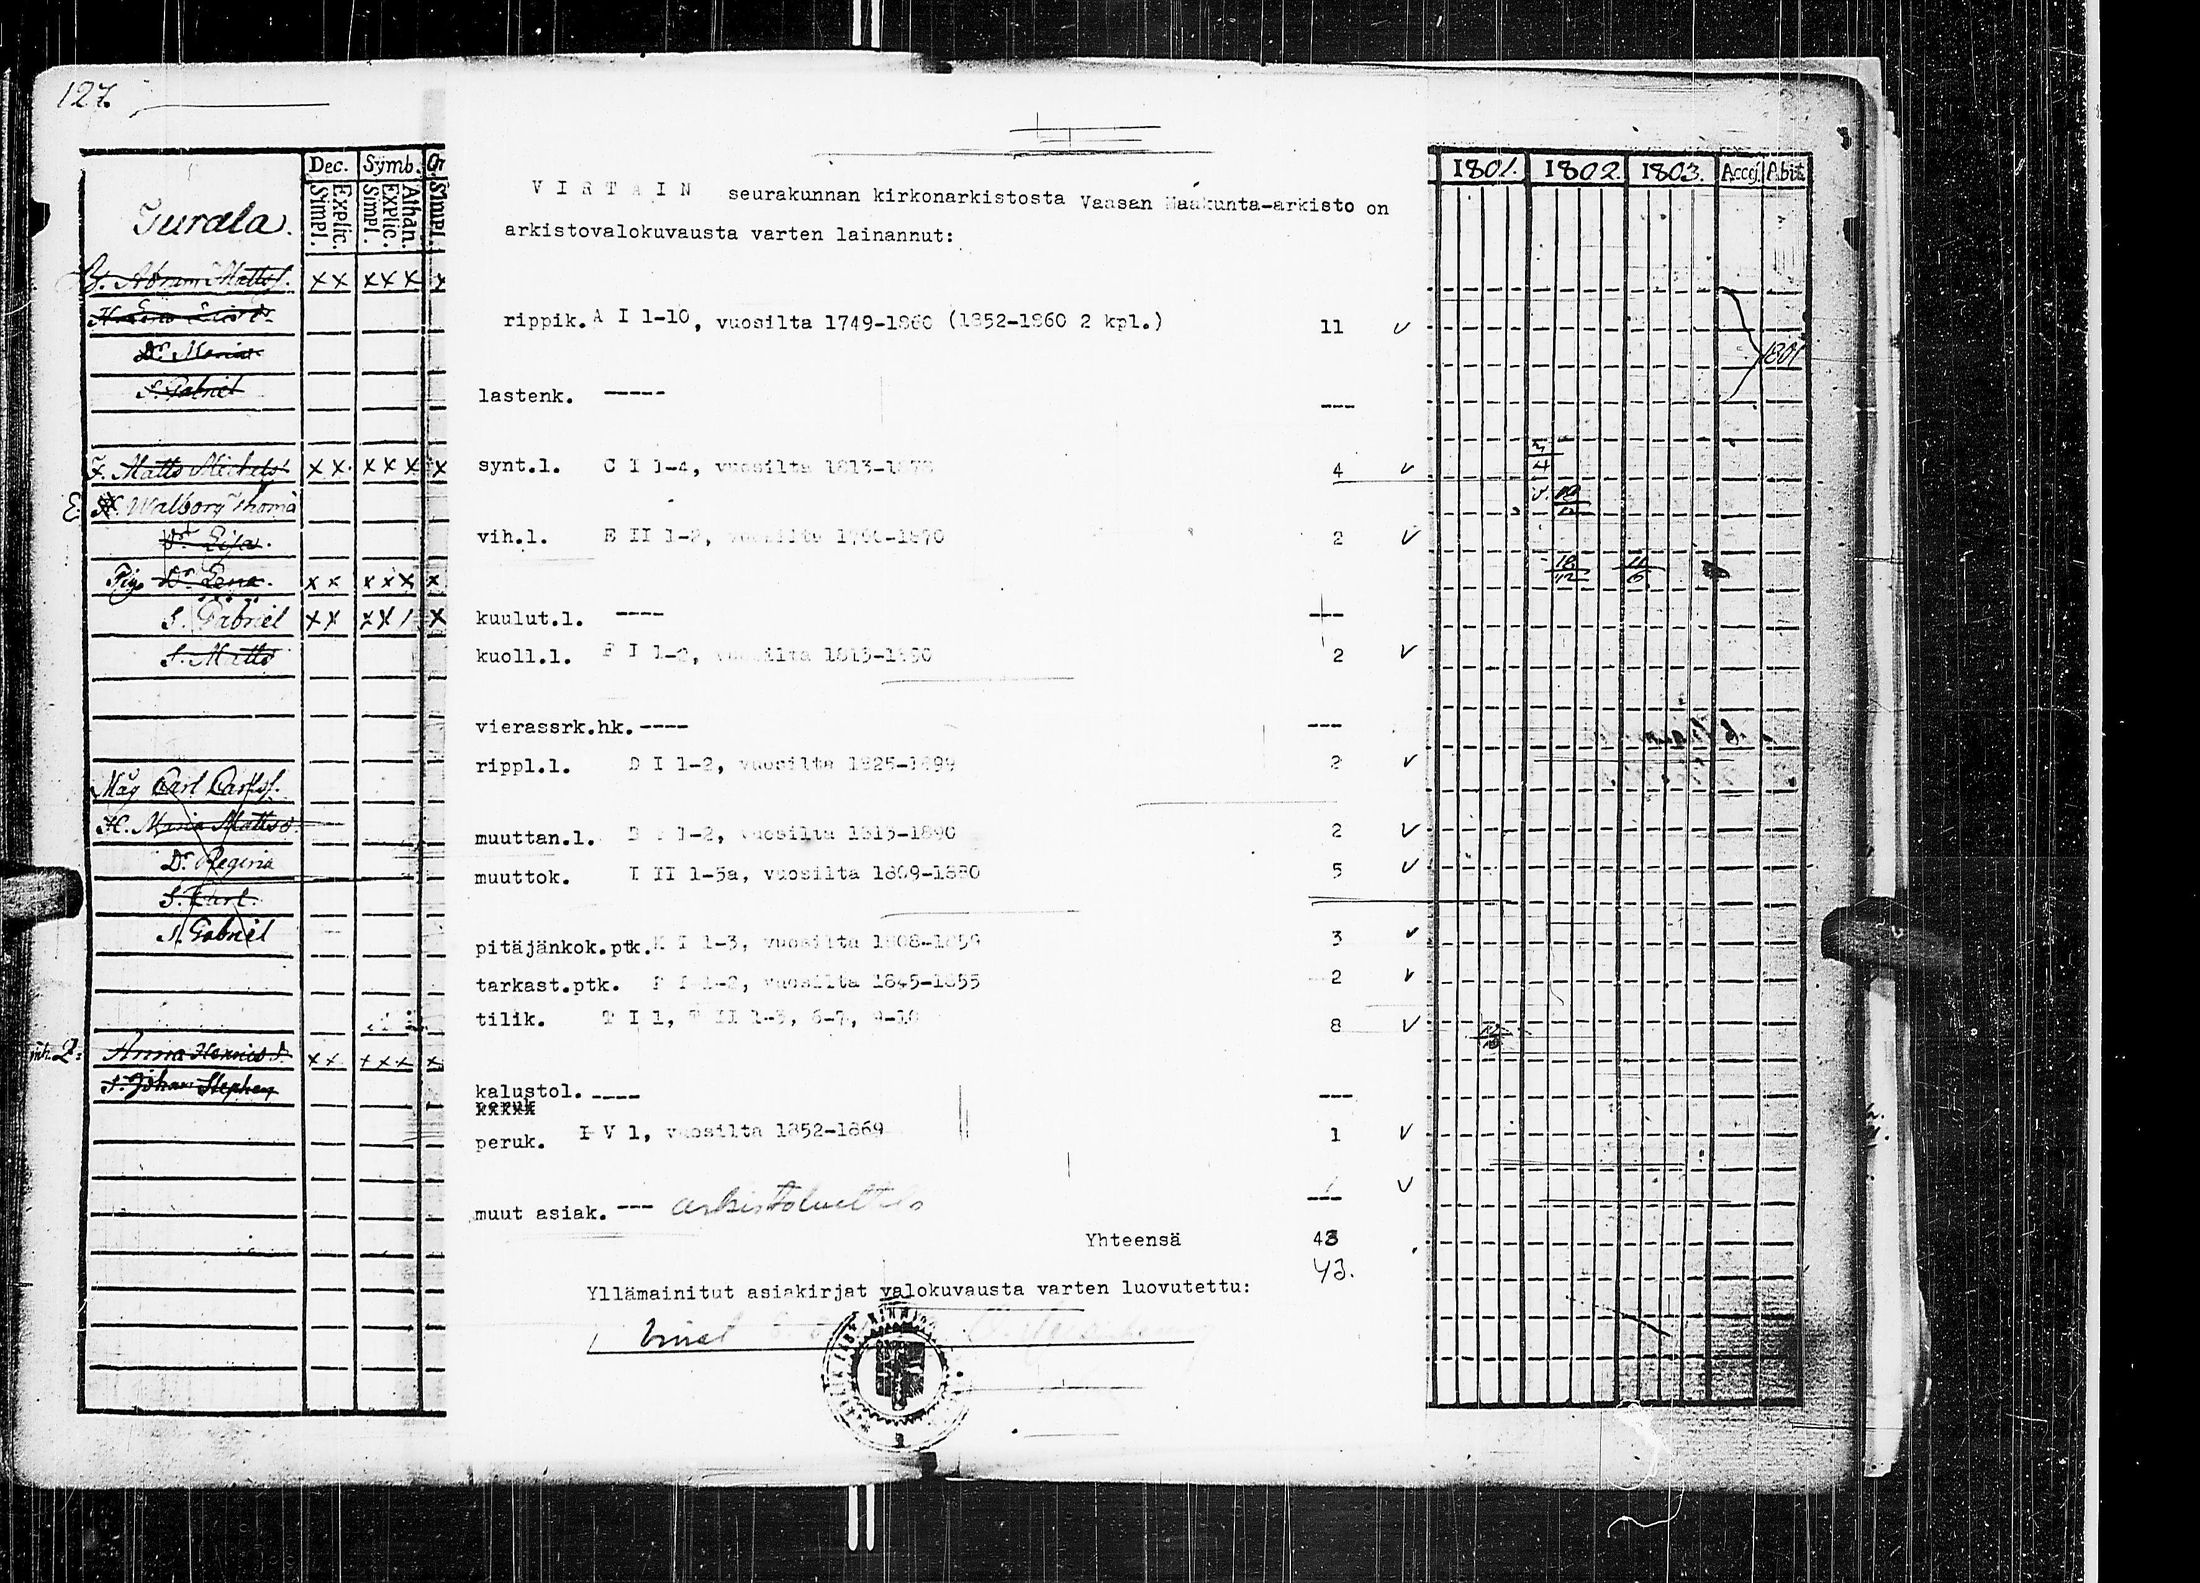 127.
Dec. Symb.
Simpl. Explic. Simpl. Explic. Athan. Simpl.
1801. 1802. 1803. Accej. Abit.
Jurala.
B. Abram Matts.
Dr. Maria
S. Gabriel
1801
F. Matts Michels. x x x x x x
E. H. Walborg Thoma
Dr. Lisa.
Pig. Dr. Lena. x x x x x x
S. Gabriel x x x x / x
S. Matts
Måg Carl Carlss.
H. Maria Mattsd.
Dr. Regina
S. Carl.
S. Gabriel
inh. E: Anna x x x x x x
S. Johan Stephen
VIRTAIN seurakunnan kirkonarkistosta Vaasan Maakunta-arkisto on
arkistovalokuvausta varten lainannut:
rippik. A I 1-10, vuosilta 1749-1860 (1852-1860 2 kpl.) 11 ✓
lastenk. ----- ---
synt.l. C I 1-4, vuosilta 1813-1878 4 ✓
vih.l. E II 1-2, vuosilta 2 ✓
kuulut.l. ---- ---
kuoll.l. F I 1-2, vuosilta 2 ✓
vierassrk.hk. ---- ---
rippl.l. D I 1-2, vuosilta 1825-1899 2 ✓
muuttan.l. B I 1-2, vuosilta 1813-1890 2 ✓
muuttok. I II 1-5a, vuosilta 1809-1880 5 ✓
pitäjänkok.ptk. K I 1-3, vuosilta 1808-1859 3 ✓
tarkast.ptk. P I 1-2, vuosilta 1845-1855 2 ✓
tilik. T I 1, T II 1-3, 6-7, 9-10 8 ✓
kalustol. ---- ---
peruk. I V 1, vuosilta 1852-1869 1 ✓
muut asiak. --- arkistoluettelo 1 ✓
Yhteensä 43
43.
Yllämainitut asiakirjat valokuvausta varten luovutettu: